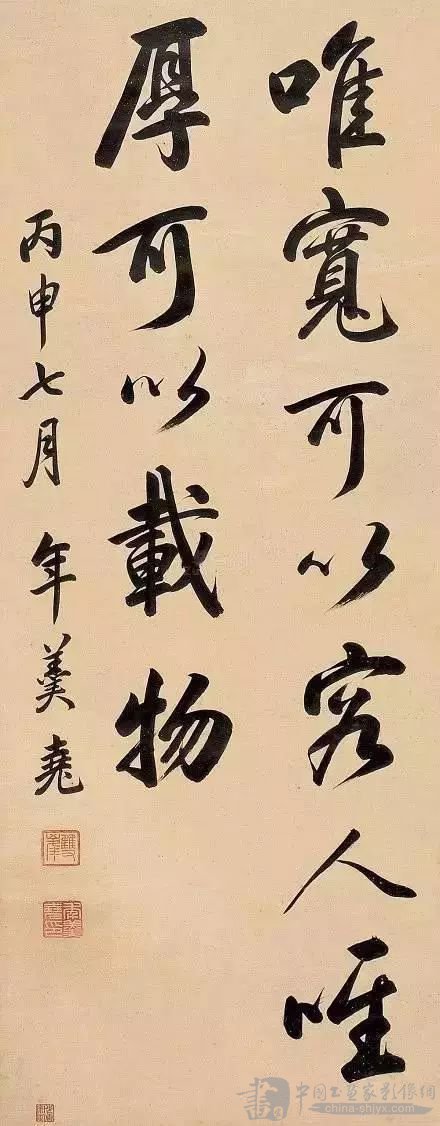 唯寬可以容人唯
厚可以載物
丙申七月 年羹堯
中国书画家影像網
china-shjyx.com